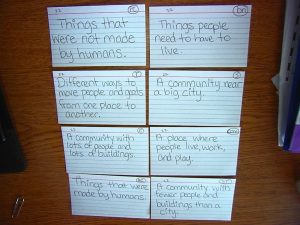 Things that
were not made
by humans.
Things people
need to have to
live.
Different ways to
move people and goods
from one place to
another.
A community near
a big city.
A community with
lots of people and
lots of buildings.
A place where
people live, work,
and play.
Things that were
made by humans.
A community with
fewer people and
buildings than a
city.